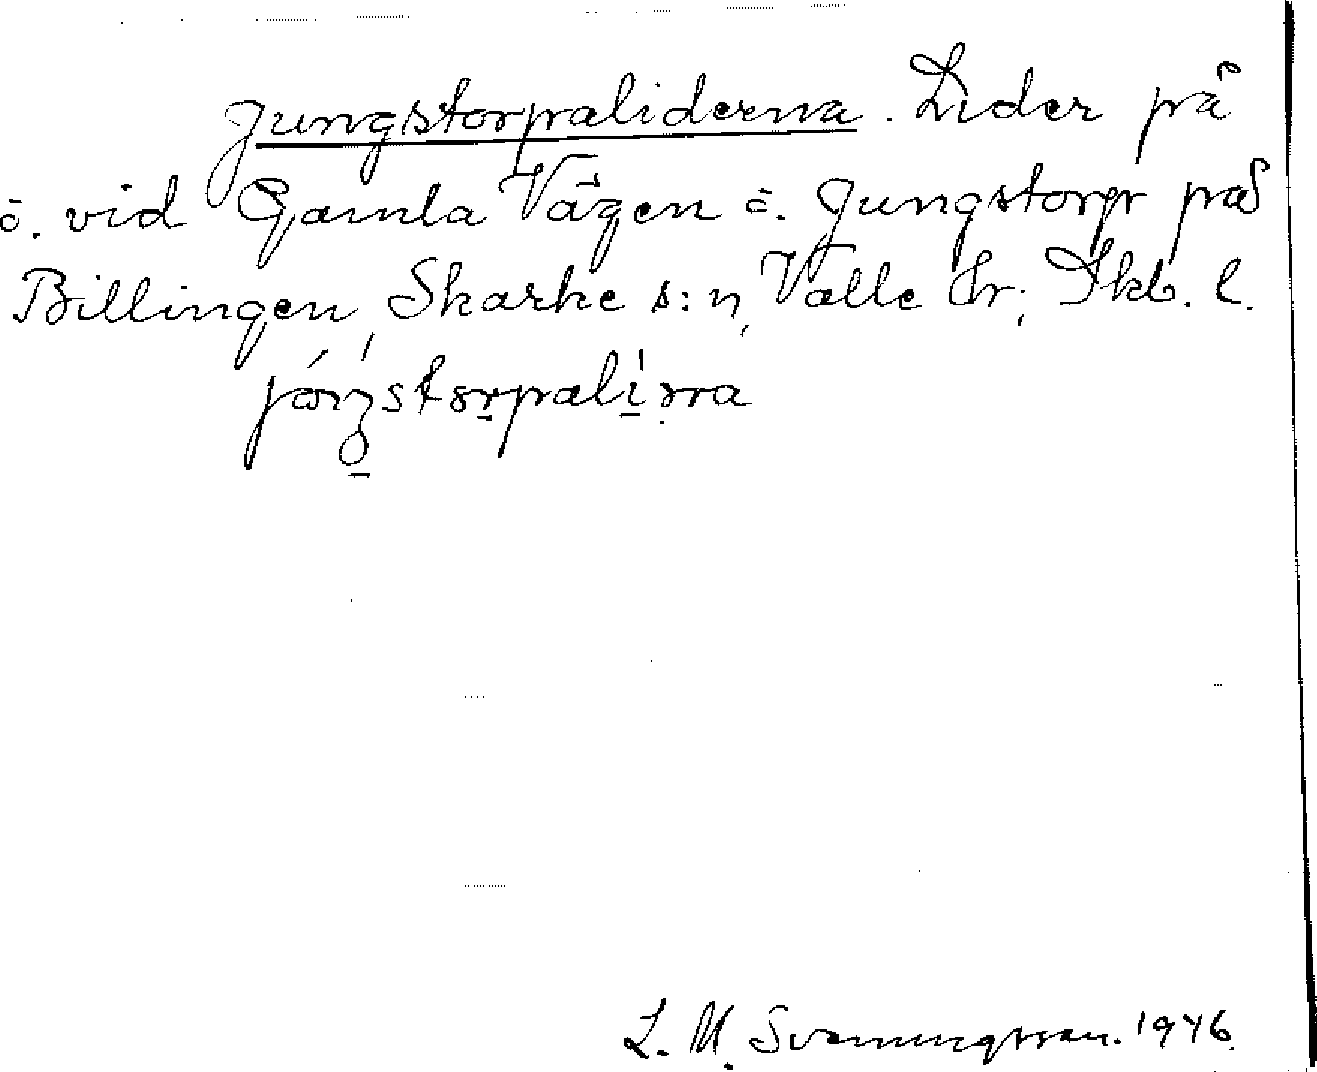 Jungstorpaliderna. Lider på
ö. vid Gamla Vägen ö. Jungstorp på
Billingen, Skarke s:n, Valle hr, Skb. l.
L. M. Svenungsson. 1946.